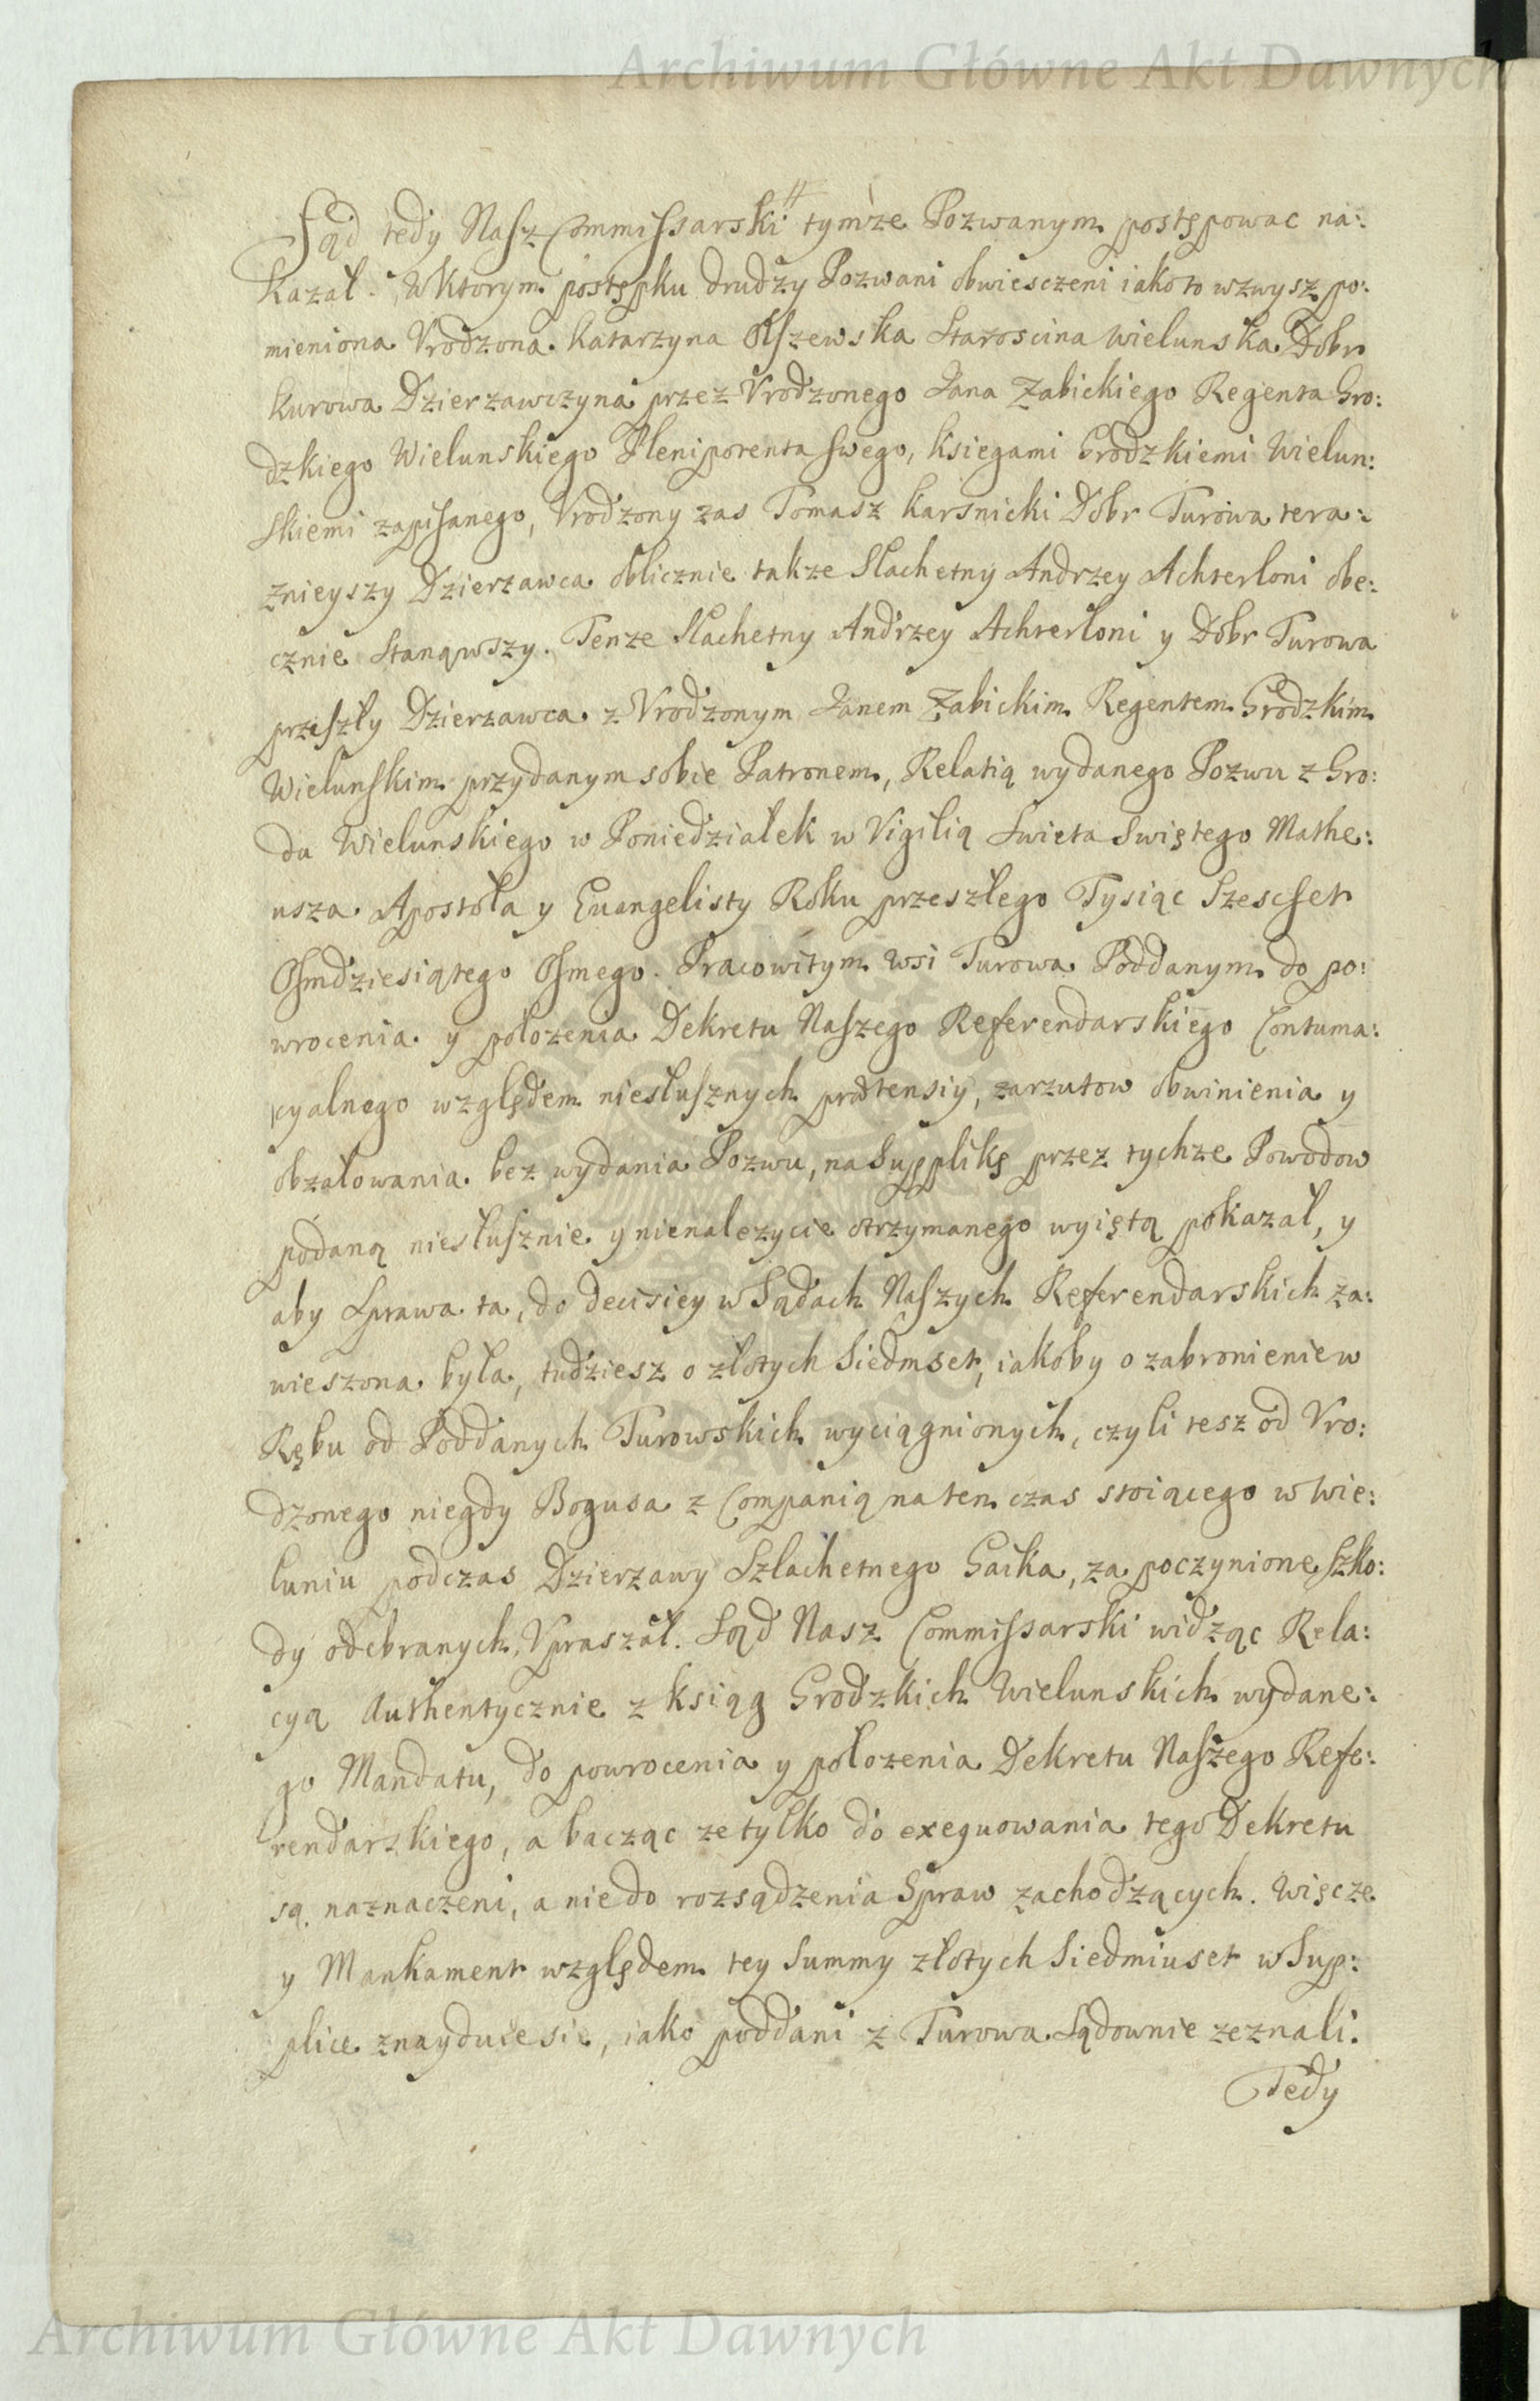 Archiwum Główne Akt Dawnych
Sąd tedy Nasz Commissarski tymże Pozwanym postępowac na:
kazał. W ktorym postępku drudzy Pozwani obwiesczeni iako to wzwysz po:
mieniona Vrodzona Katarzyna Olszewska Staroscina wielunska Dobr
Kurowa Dzierzawczyna przez Vrodzonego Jana Zabickiego Regenta Gro:
dzkiego Wielunskiego Plenipotenta swego, ksiegami Grodzkiemi Wielun:
skiemi zapisanego, Vrodzony zas Tomasz Karsnicki Dobr Turowa tera:
znieyszy Dzierzawca oblicznie takze Slachetny Andrzey Achterloni obe:
cznie stanąwszy. Tenze Slachetny Andrzey Achterloni y Dobr Turowa
przeszły Dzierzawca z Vrodzonym Janem Zabickim Regentem Grodzkim
Wielunskim przydanym sobie Patronem, Relatią wydanego Pozwu z Gro:
du Wielunskiego w Poniedziałek w Vigilią Swieta Swiętego Mathe:
usza Apostoła y Euangelisty Roku przeszłego Tysiąc Szescset
Osmdziesiątego Osmego. Pracowitym wsi Turowa Poddanym do po:
wrocenia y połozenia Dekretu Naszego Referendarskiego Contuma:
cyalnego względem niesłusznych prætensiy, zarzutow obwinienia y
obzałowania bez wydania Pozwu, na Supplikę przez tychze Powodow
podaną niesłusznie y nienalezycie otrzymanego wyiętą pokazał, y
aby Sprawa ta, do decisiey w Sądach Naszych Referendarskich za:
wieszona była, tudziesz o złotych Siedmset, iakoby o zabronienie w
Rębu od Poddanych Turowskich wyciągnionych, czyli tesz od Vro:
dzonego niegdy Bogusa z Companią na ten czas stoiącego w Wie:
luniu podczas Dzierzawy Szlachetnego Gaika, za poczynione szko:
dy odebranych, Vpraszał. Sąd Nasz Commissarski widząc Rela:
cyą Authentycznie z ksiąg Grodzkich Wielunskich wydane:
go Mandatu, do powrocenia y połozenia Dekretu Naszego Refe:
rendarskiego, a bacząc ze tylko do exeguowania tego Dekretu
są naznaczeni, a nie do rozsądzenia Spraw zachodzących. Więc ze
y Mankament względem tey Summy złotych Siedmiuset w Sup:
plice znayduie sie, iako poddani z Turowa Sądownie zeznali.
Tedy
Archiwum Główne Akt Dawnych